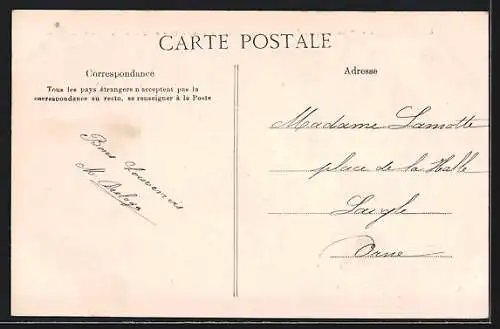 CARTE POSTALE
Correspondance
Tous les pays étrangers n'acceptent pas la
correspondance au recto, se renseigner à la Poste
Bons Souvenirs
M.
Adresse
Madame Lamotte
place de la Halle
Laigle
Orne